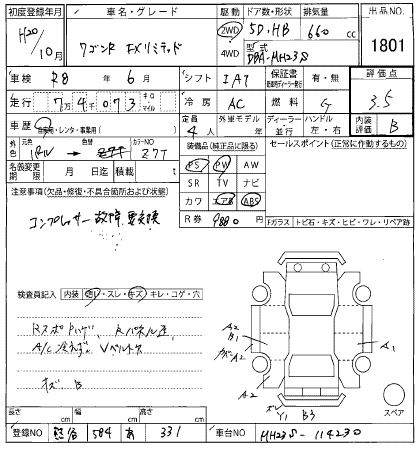 初度登録年月 車名・グレード 駆動 ドア数・形状 排気量 出品NO.
H20/10月 ワゴンR FXリミテッド 2WD 4WD 5D.HB 660 cc 1801
型式 DBA-MH23S
車検 R8 年 6 月 シフト IAT 保証書 有・無 評価点 3.5
走行 7万4千073 キロ マイル 冷房 AC 燃料 G
車歴 自家用・レンタ・事業用( ) 定員 4人 外車モデル 年 ディーラー 並行 ハンドル 左・右 内装評価 B
外色 元色 色替 カラーNO Z7T
装備品(純正品に限る) セールスポイント(正常に作動するもの)
名義変更期限 月 日迄 積載 t
PS PW AW
SR TV ナビ
カワ エアB ABS
R券 9880 円
注意事項(欠品・修復・不具合箇所および状態)
コンプレッサー故障 要交換
Fガラス トビ石・キズ・ヒビ・ワレ・リペア跡
検査員記入 内装 スレ・キズ・キレ・コゲ・穴
A/C冷えず Vベルト
B
A2
B1
A2
A2
A1
Y1 B3
スペア
長さ cm 幅 cm 高さ cm
登録NO 584 あ 331 車台NO MH23S-114230